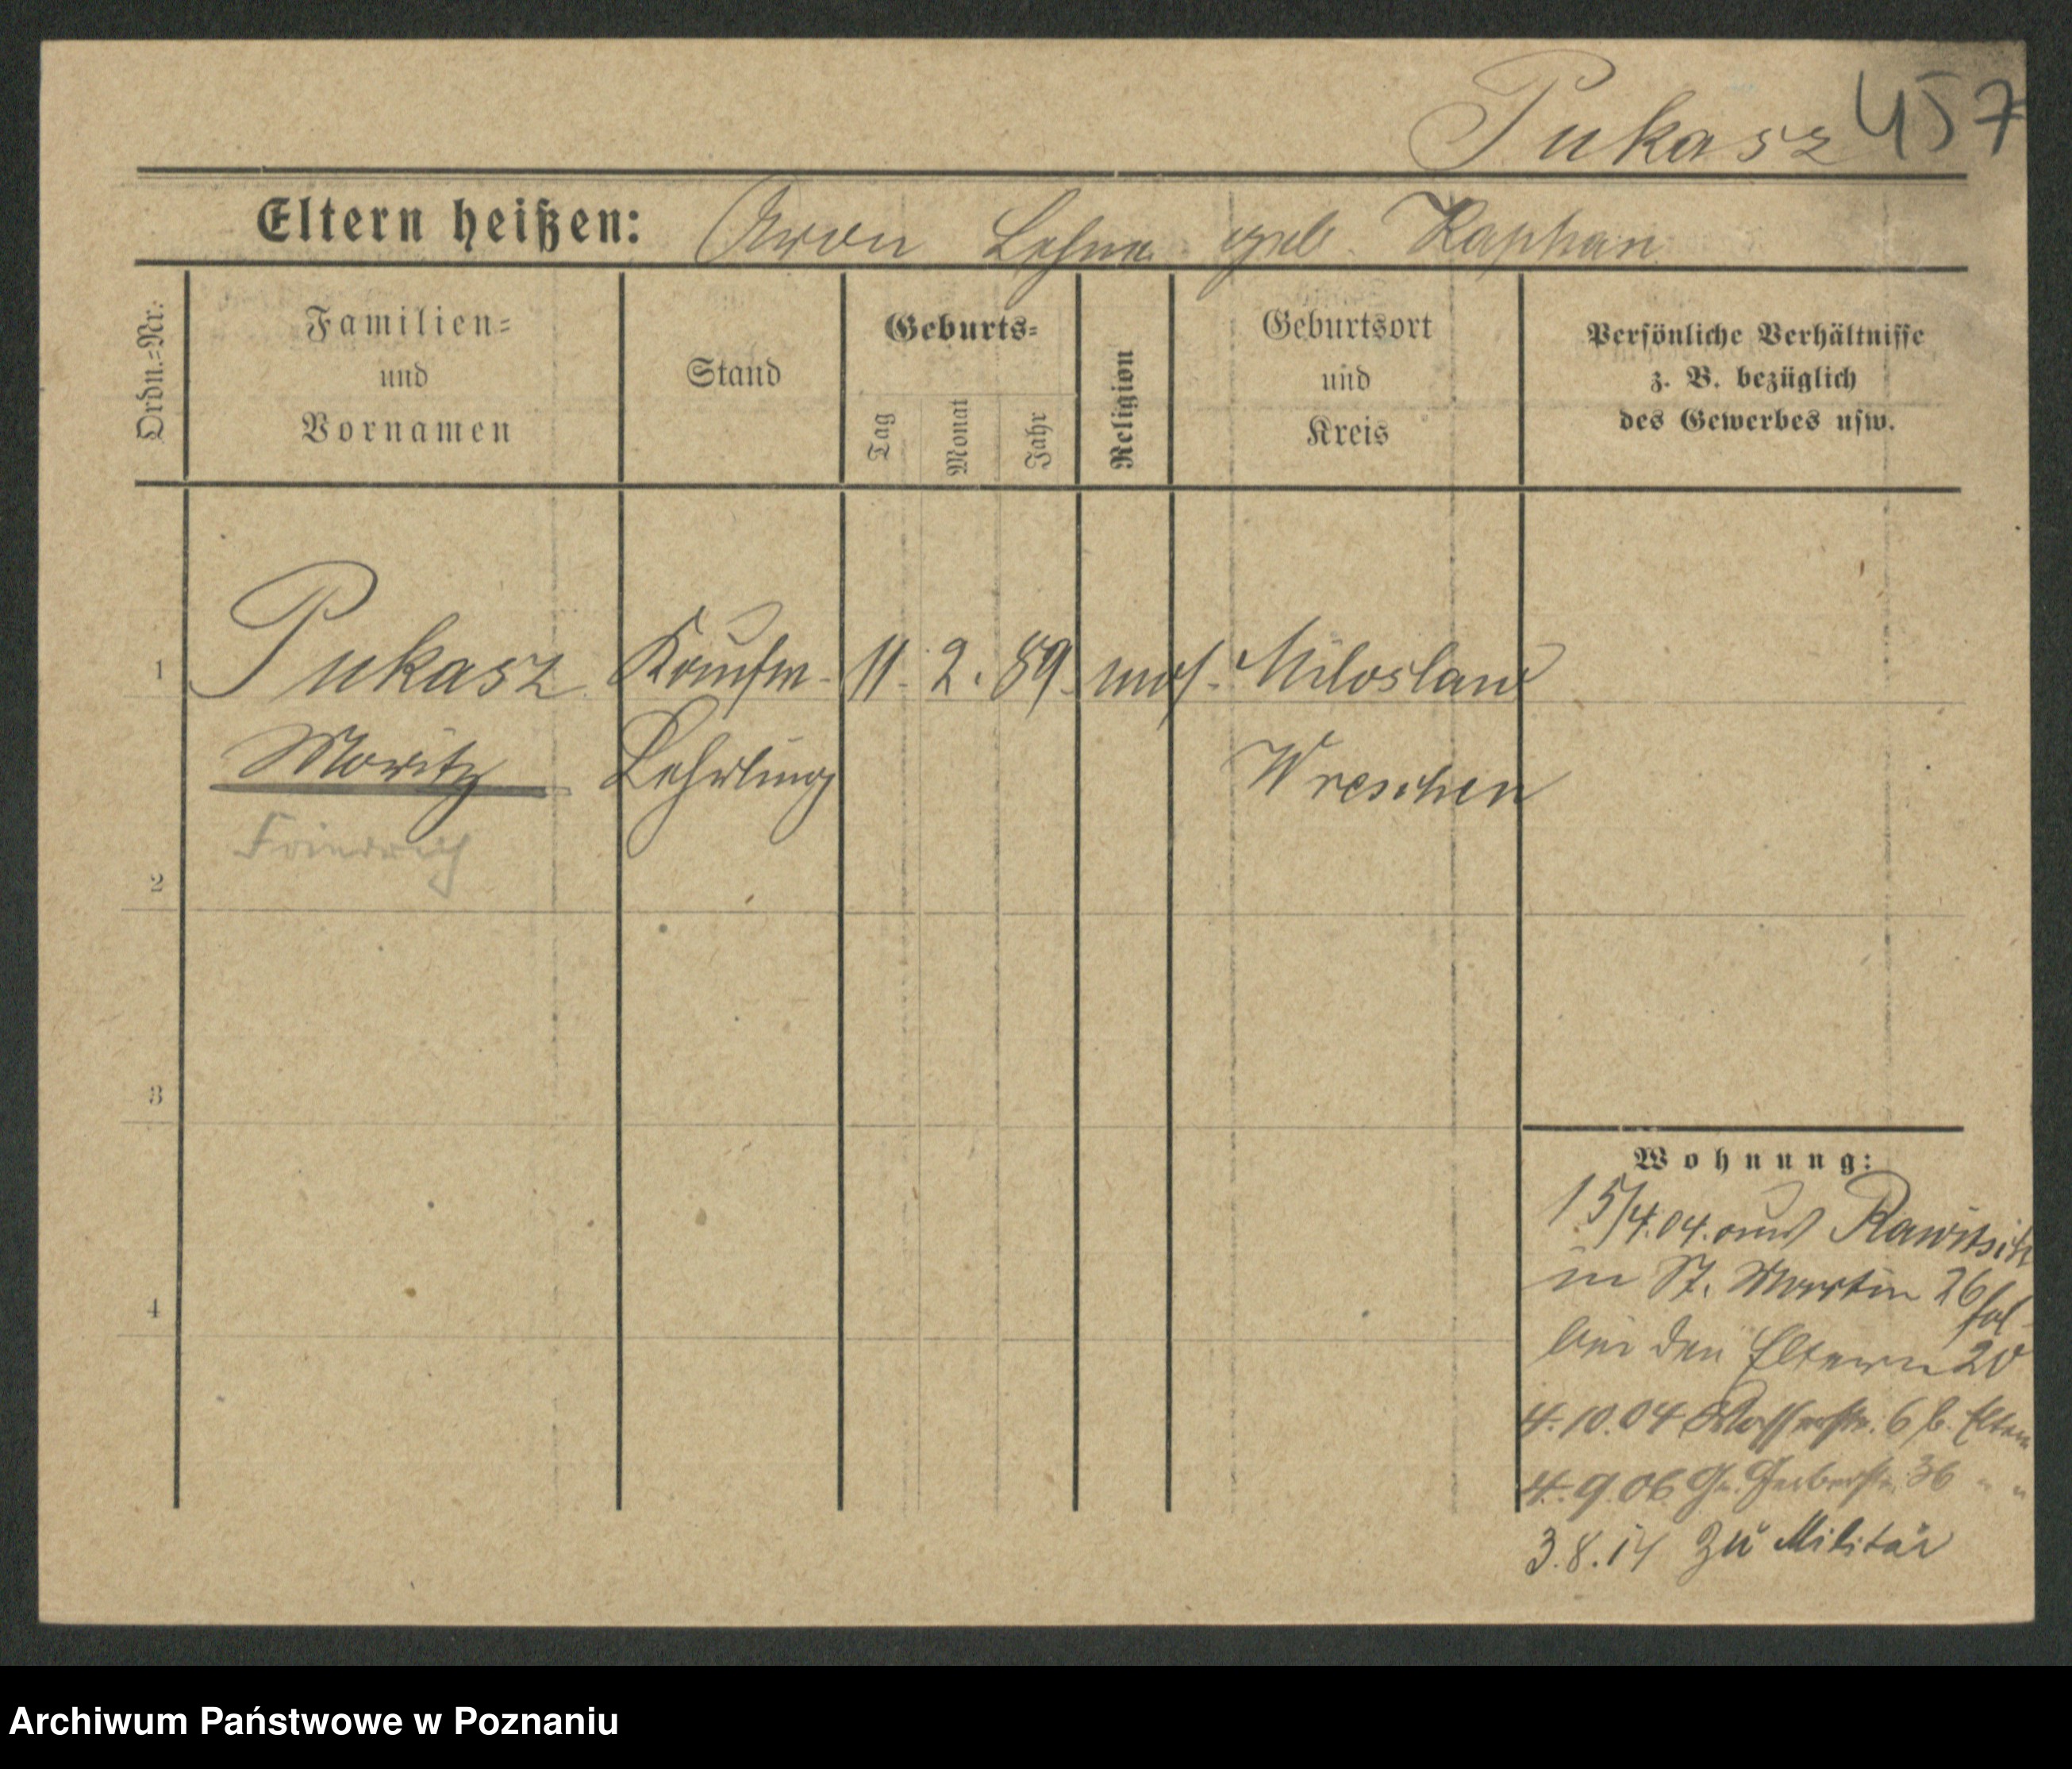 Pukasz 457
Eltern heißen: Aron geb. Kaphan
Ordn.=Nr.
Familien=
und
Vornamen
Stand
Geburts=
Tag
Monat
Jahr
Religion
Geburtsort
und
Kreis
Persönliche Verhältnisse
z. B. bezüglich
des Gewerbes usw.
1 Pukasz Kaufm. 11. 2. 89. mos. Miloslaw
Moritz Lehrling Wreschen
Friedrich
2
3
4
Wohnung:
15/4.04. aus Rawitsch
in St. Martin 26
bei den Eltern 20
4.10.04 Wasserstr. 6 b. Eltern
4.9.06 Gr. Gerberstr. 36 " "
3.8.14 Zu Militär
Archiwum Państwowe w Poznaniu